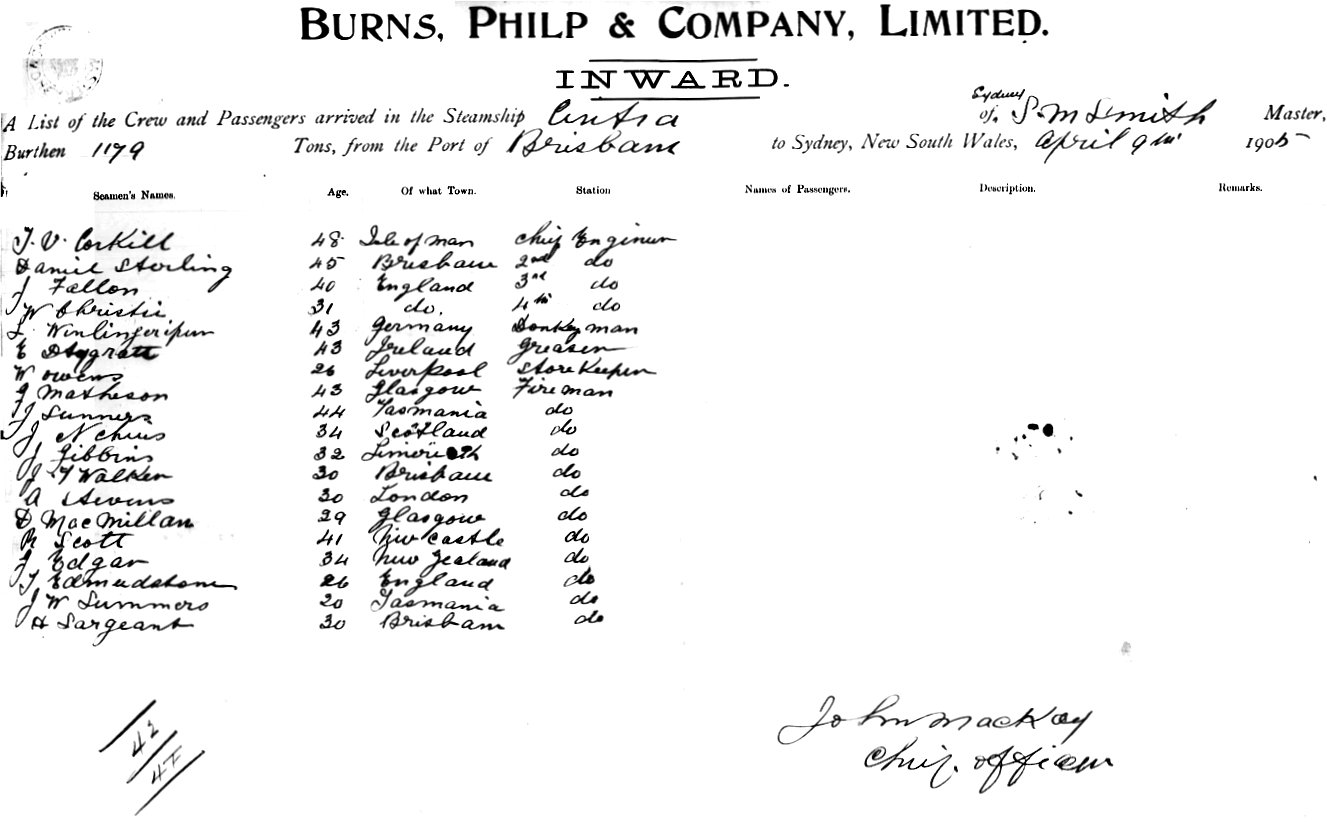 BURNS, PHILP & COMPANY, LIMITED.
INWARD.
A List of the Crew and Passengers arrived in the Steamship Cintra of Sydney S. M Smith Master,
Burthen 1179 Tons, from the Port of Brisbane to Sydney, New South Wales, April 9th 1905
Seamen's Names. Age. Of what Town. Station Names of Passengers. Description. Remarks.
J. V. Corkill 48 Isle of Man Chief Engineer
Daniel Storling 45 Brisbane 2nd do
J Fallon 40 England 3rd do
W Christie 31 do. 4th do
43 Germany Donkeyman
E 43 Ireland Greaser
W Owens 26 Liverpool Storekeeper
J Matheson 43 Glasgow Fireman
J Sunners 44 Tasmania do
J 34 Scotland do
J Gibbins 32 do
J Y Walker 30 Brisbane do
A Stevens 30 London do
D MacMillan 29 Glasgow do
R Scott 41 New Castle do
J Edgar 34 New Zealand do
J Edmudstone 26 England do
J W Summers 20 Tasmania do
H Sargeant 30 Brisbane do
John Mackay
Chief officer
42